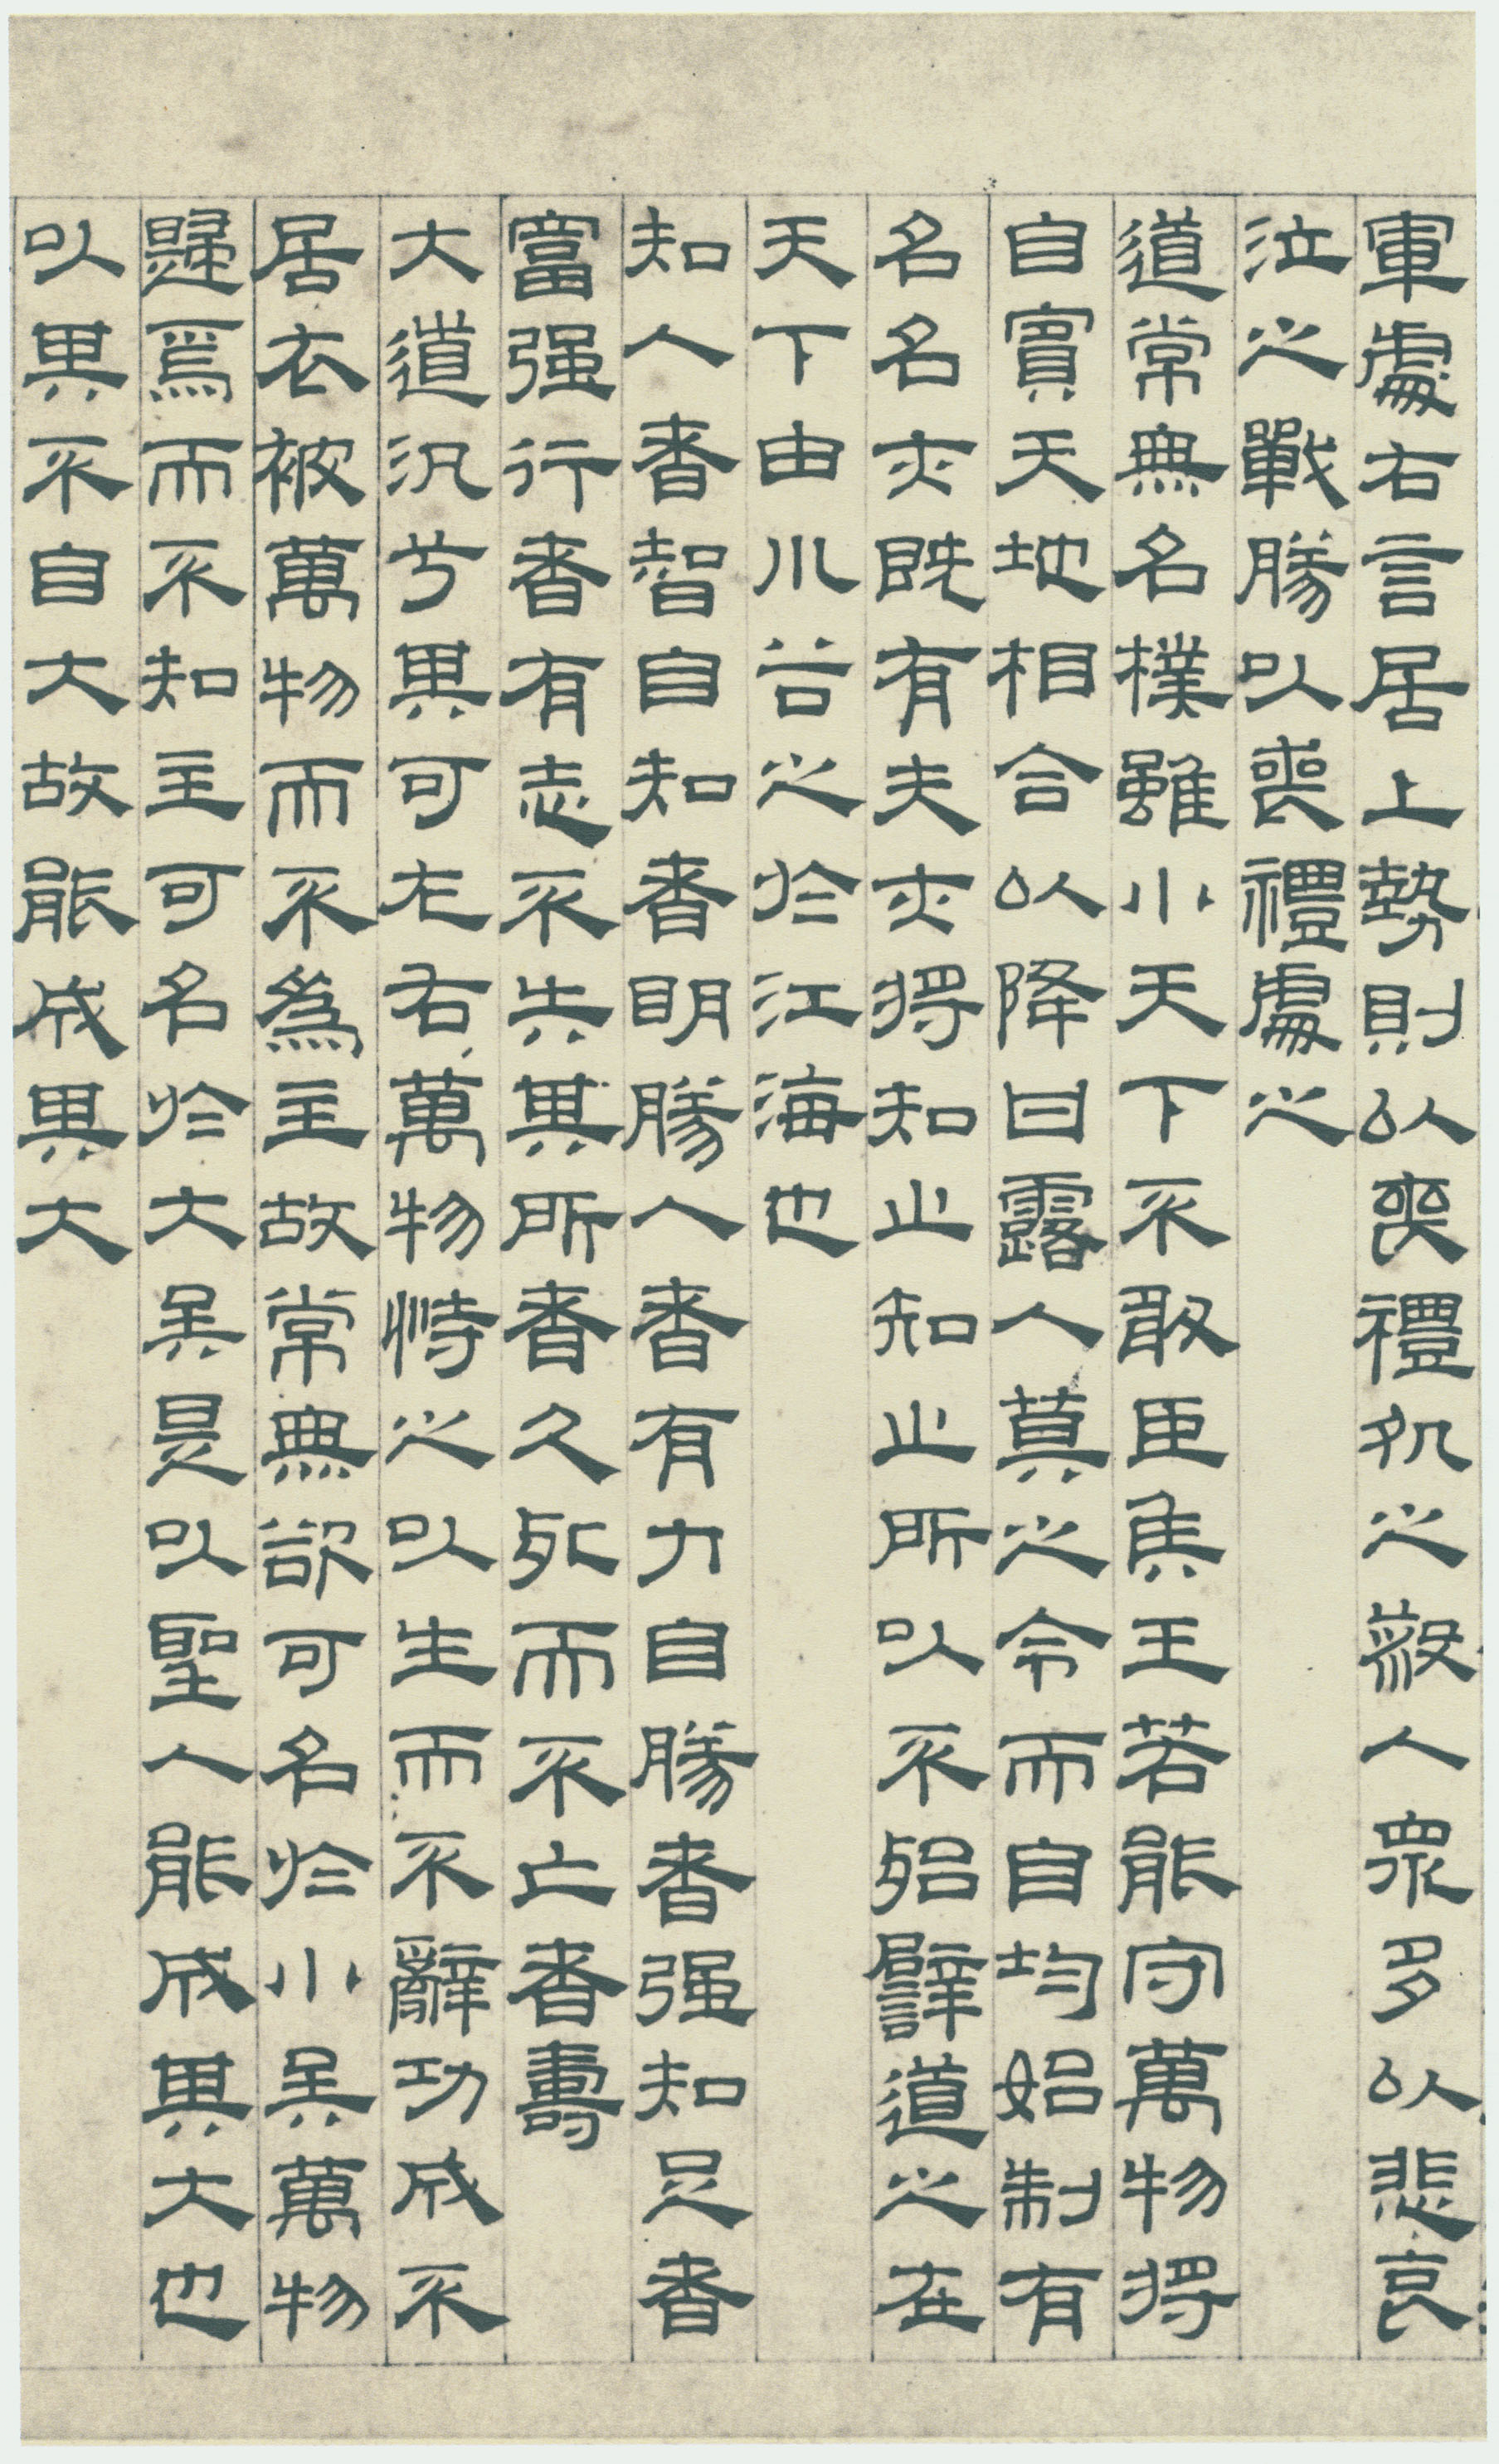 軍處右言居上勢則以喪禮処之殺人眾多以悲哀
泣之戰勝以喪禮處之
道常無名樸雖小天下不敢臣矦王若能守萬物將
自賓天地相合以降甘露人莫之令而自均始制有
名名亦既有夫亦將知止知止所以不殆譬道之在
天下由川谷之於江海也
知人者智自知者明勝人者有力自勝者强知足者
富强行者有志不失其所者久死而不亡者壽
大道汎兮其可左右萬物恃之以生而不辭功成不
居衣被萬物而不為主故常無欲可名於小矣萬物
歸焉而不知主可名於大矣是以聖人能成其大也
以其不自大故能成其大